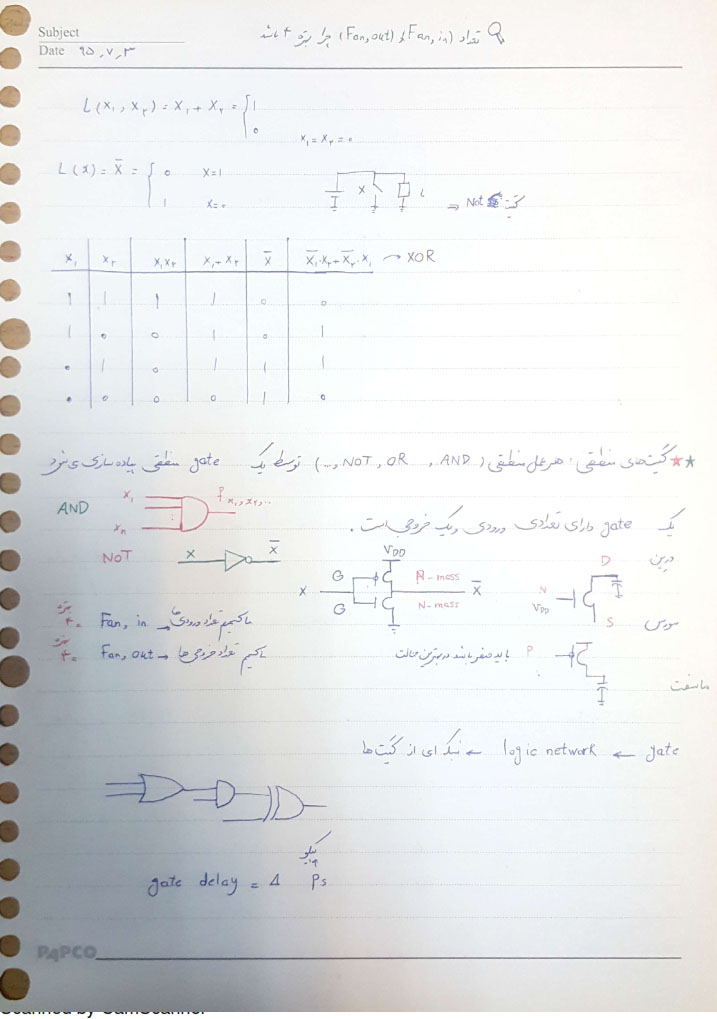 Subject
Date ۹۵,۷,۳
تعداد (Fan,in) و (Fan,out) چرا بهتره ۴ باشد
L(x₁,x₂) = x₁ + x₂ = { 1
0 x₁ = x₂ = 0
L(x) = x̅ = { 0 x=1
1 x=0
X L ⇒ Not گیت
x₁ x₂ x₁x₂ x₁+x₂ x̅ x̅₁·x₂+x̅₂·x₁ → XOR
1 1 1 1 0 0
1 0 0 1 0 1
0 1 0 1 1 1
0 0 0 0 1 0
★★ گیت‌های منطقی: هر عمل منطقی (AND , OR , NOT , ...) توسط یک gate منطقی پیاده سازی می‌شود
AND x₁ xₙ f x₁,x₂,...
یک gate دارای تعدادی ورودی و یک خروجی است.
NOT x x̅
VDD
X G G P-mass N-mass x̅
درین D
N VDD S سورس
بهتره ۴۰ Fan, in → ماکسیمم تعداد ورودی‌ها
بهتره ۴۰ Fan, out → ماکسیمم تعداد خروجی‌ها
باید صفر باشد در بهترین حالت P
ماسفت
gate ← logic network ← شبکه ای از گیت‌ها
gate delay = Δ Ps
پیکو
PAPCO
Scanned by CamScanner